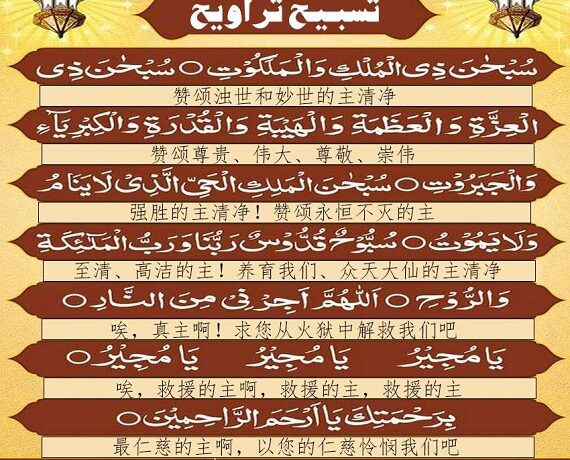 تسبیح تراویح
سُبْحٰنَ ذِی الْمُلْكِ وَالْمَلَكُوْتِ ○ سُبْحٰنَ ذِی
赞颂浊世和妙世的主清净
الْعِزَّةِ وَالْعَظَمَةِ وَالْهَيْبَةِ وَالْقُدْرَةِ وَالْكِبْرِيَآءِ
赞颂尊贵、伟大、尊敬、崇伟
وَالْجَبَرُوْتِ ○ سُبْحٰنَ الْمَلِكِ الْحَیِّ الَّذِیْ لَايَنَامُ
强胜的主清净！赞颂永恒不灭的主
وَلَا يَمُوْتُ ○ سُبُّوْحٌ قُدُّوْسٌ رَبُّنَا وَرَبُّ الْمَلٰٓئِكَةِ
至清、高洁的主！养育我们、众天大仙的主清净
وَالرُّوْحِ ○ اَللّٰهُمَّ اَجِرْنِیْ مِنَ النَّارِ ○
唉，真主啊！求您从火狱中解救我们吧
يَا مُجِيْرُ يَا مُجِيْرُ يَا مُجِيْرُ ○
唉，救援的主啊，救援的主，救援的主
بِرَحْمَتِكَ يَا اَرْحَمَ الرَّاحِمِيْنَ ○
最仁慈的主啊，以您的仁慈怜悯我们吧